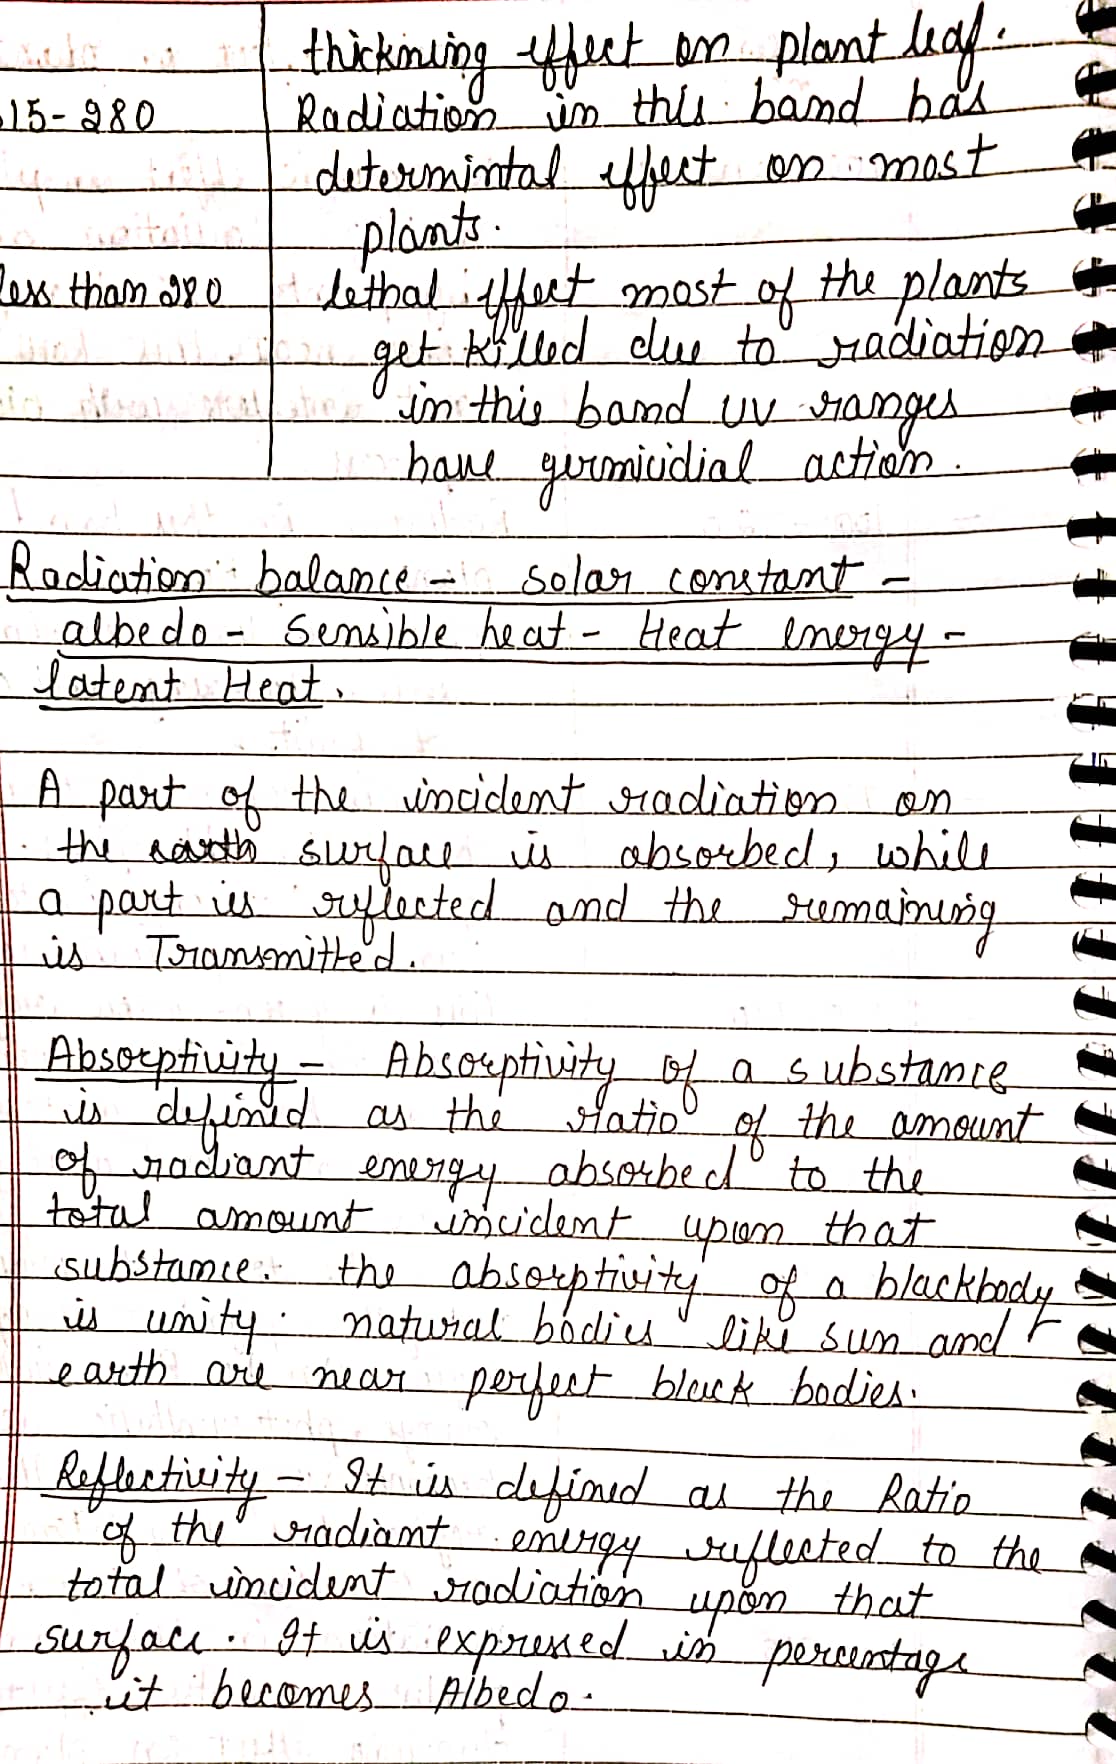 thickning effect on plant leaf.
15-280 Radiation in this band has
determintal effect on most
plants.
less than 280 lethal effect most of the plants
get killed due to radiation
in this band uv ranges
have germicidial action.
Radiation balance - solar constant -
albedo - Sensible heat - Heat energy -
latent Heat.
A part of the incident radiation on
the earth surface is absorbed, while
a part is reflected and the remaining
is Transmitted.
Absorptivity - Absorptivity of a substance
is defined as the ratio of the amount
of radiant energy absorbed to the
total amount incident upon that
substance. the absorptivity of a blackbody
is unity. natural bodies like sun and
earth are near perfect black bodies.
Reflectivity - It is defined as the Ratio
of the radiant energy reflected to the
total incident radiation upon that
surface. It is expressed in percentage
it becomes Albedo.